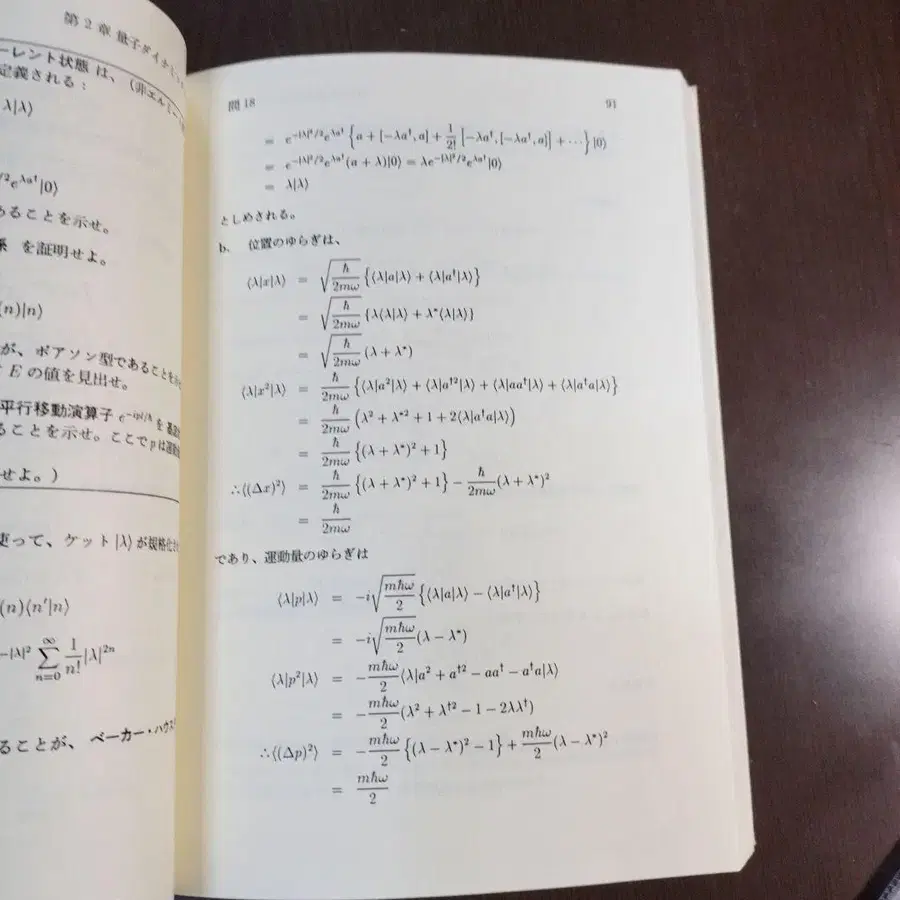 第 2 章 量子ダイナミ
ーレント状態 は、(非エルミー
定義される:
λ|λ⟩
/2 e^{λa†}|0⟩
あることを示せ。
係 を証明せよ。
(n)|n⟩
が、ポアソン型であることを示
E の値を見出せ。
平行移動演算子 e^{-ipl/ℏ} を
ることを示せ。ここで p は運動
せよ。)
使って、ケット |λ⟩ が規格化さ
(n)⟨n'|n⟩
-|λ|² ∑_{n=0}^{∞} 1/n! |λ|^{2n}
ることが、 ベーカー・ハウス
問 18 91
= e^{-|λ|²/2} e^{λa†} {a + [-λa†, a] + 1/2! [-λa†, [-λa†, a]] + ⋯} |0⟩
= e^{-|λ|²/2} e^{λa†}(a + λ)|0⟩ = λe^{-|λ|²/2} e^{λa†}|0⟩
= λ|λ⟩
としめされる。
b. 位置のゆらぎは、
⟨λ|x|λ⟩ = √(ℏ/2mω) {⟨λ|a|λ⟩ + ⟨λ|a†|λ⟩}
= √(ℏ/2mω) {λ⟨λ|λ⟩ + λ*⟨λ|λ⟩}
= √(ℏ/2mω) (λ + λ*)
⟨λ|x²|λ⟩ = ℏ/2mω {⟨λ|a²|λ⟩ + ⟨λ|a†²|λ⟩ + ⟨λ|aa†|λ⟩ + ⟨λ|a†a|λ⟩}
= ℏ/2mω (λ² + λ*² + 1 + 2⟨λ|a†a|λ⟩)
= ℏ/2mω {(λ + λ*)² + 1}
∴⟨(Δx)²⟩ = ℏ/2mω {(λ + λ*)² + 1} − ℏ/2mω (λ + λ*)²
= ℏ/2mω
であり、運動量のゆらぎは
⟨λ|p|λ⟩ = −i√(mℏω/2) {⟨λ|a|λ⟩ − ⟨λ|a†|λ⟩}
= −i√(mℏω/2) (λ − λ*)
⟨λ|p²|λ⟩ = −mℏω/2 ⟨λ|a² + a†² − aa† − a†a|λ⟩
= −mℏω/2 (λ² + λ†² − 1 − 2λλ†)
∴⟨(Δp)²⟩ = −mℏω/2 {(λ − λ*)² − 1} + mℏω/2 (λ − λ*)²
= mℏω/2